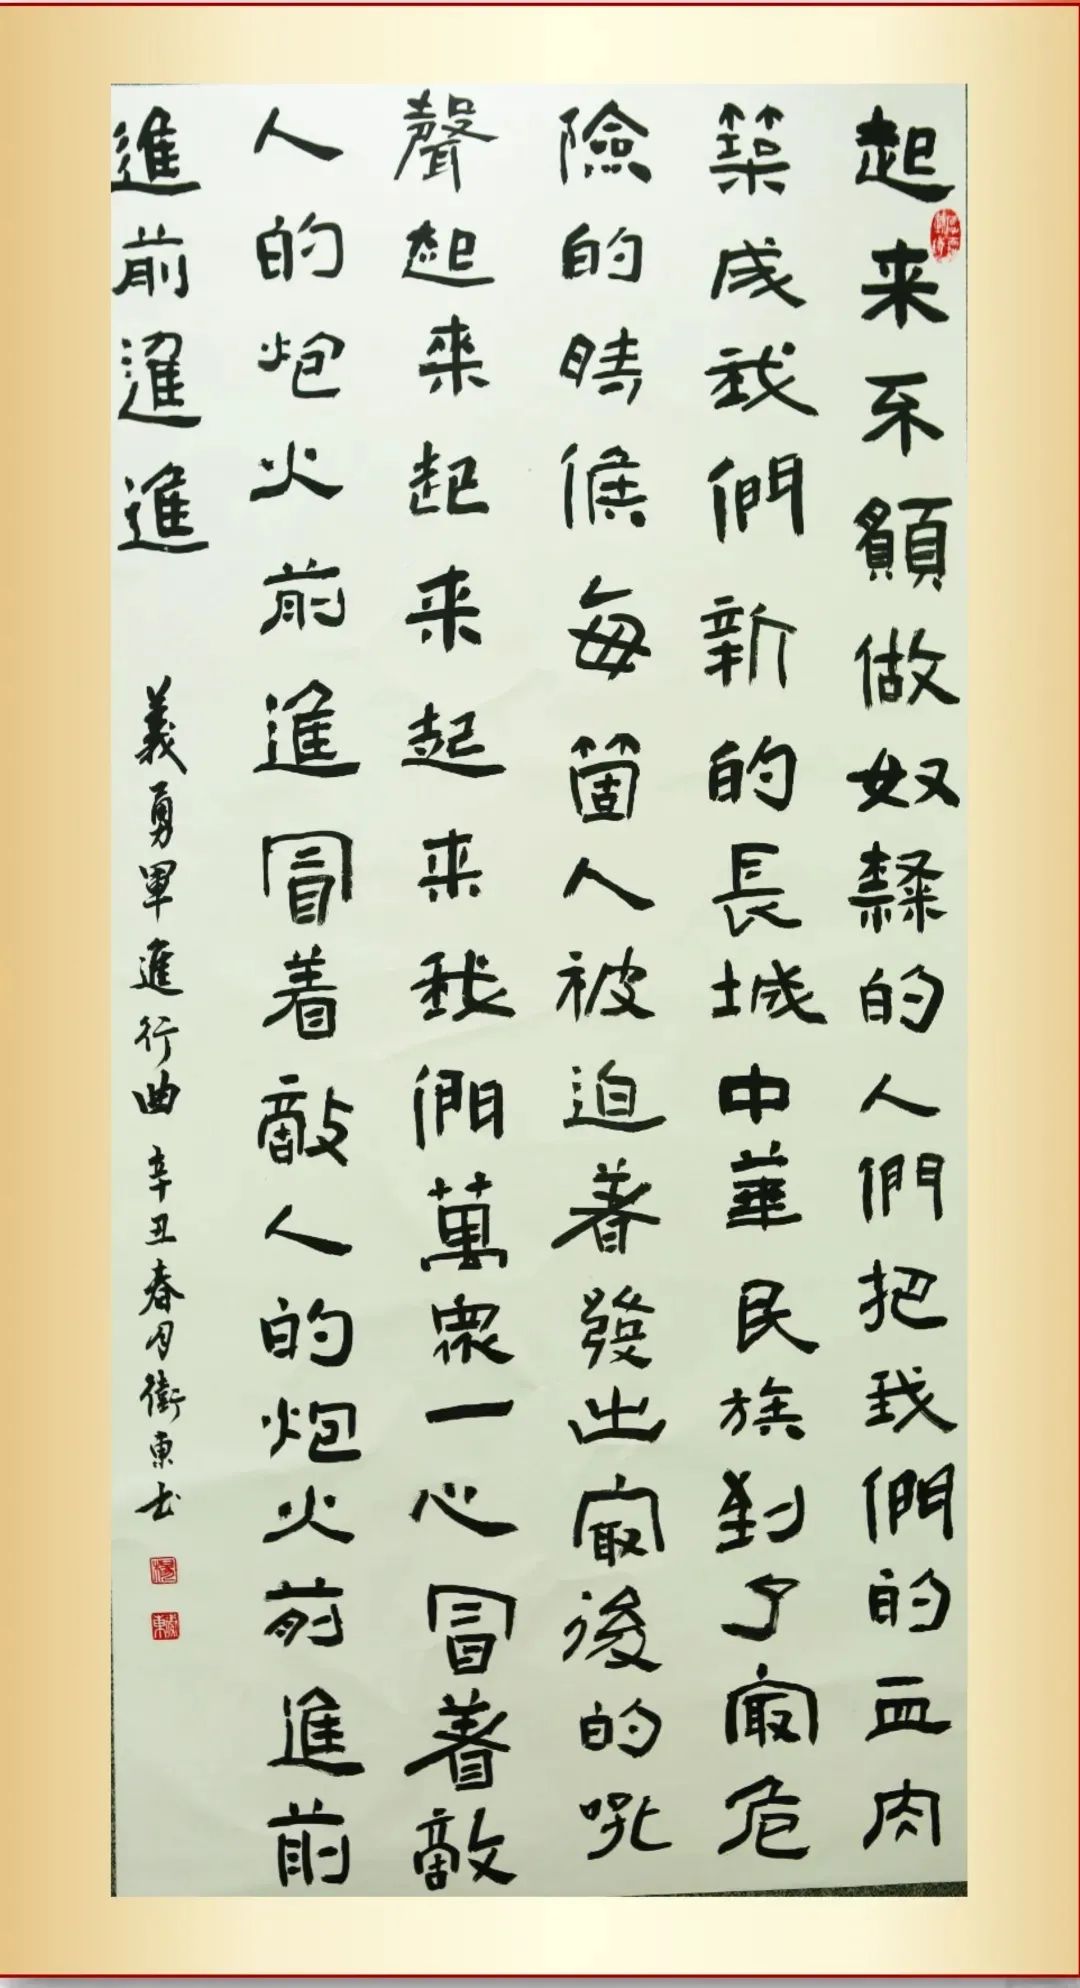 起来不願做奴隸的人們把我們的血肉
築成我們新的長城中華民族到了最危
險的時候每箇人被迫着發出最後的吼
聲起來起来起来我們萬眾一心冒着敵
人的炮火前進冒着敵人的炮火前進前
進前進進
義勇軍進行曲 辛丑春月衛東书